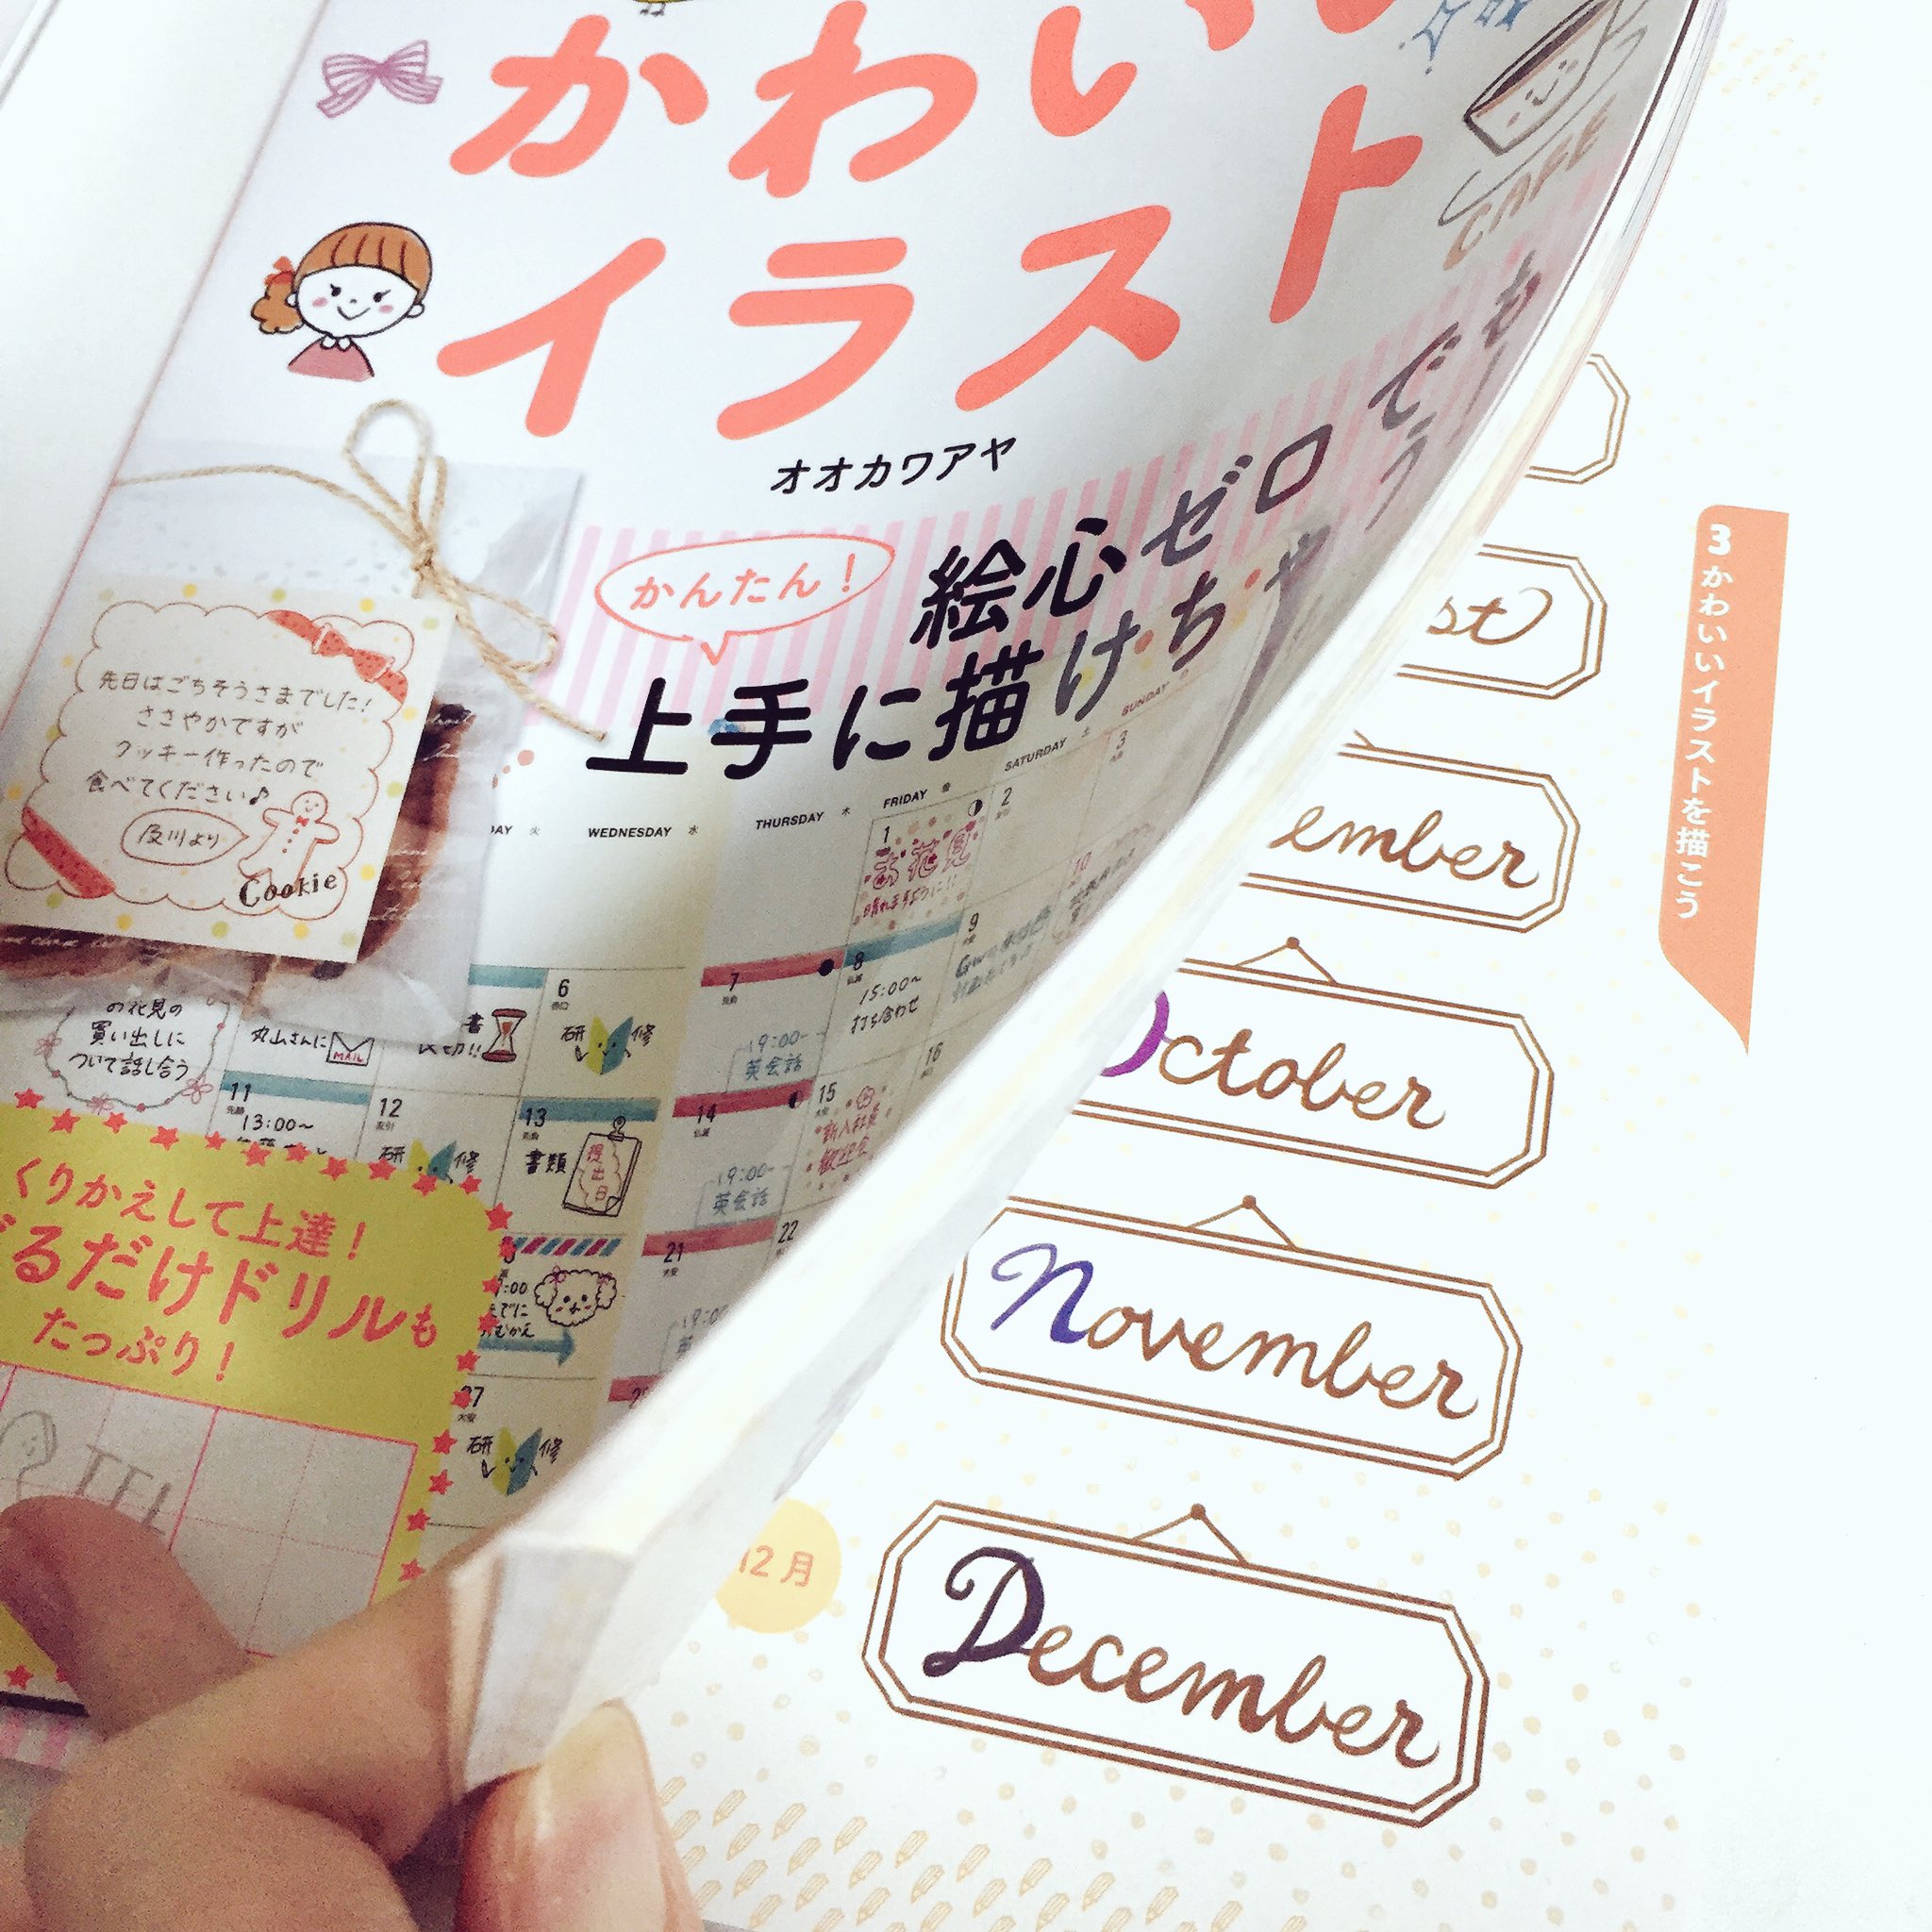 かわい
イラスト
CAFE
オオカワアヤ
かんたん！
絵心ゼロでも
上手に描けちゃう
先日はごちそうさまでした！
ささやかですが
クッキー作ったので
食べてください♪
及川より
Cookie
WEDNESDAY 水
THURSDAY 木
FRIDAY 金
SATURDAY 土
SUNDAY
1
お花見
晴れますように!!
2
3
6
研修
7
19:00-
英会話
8
15:00~
打ち合わせ
9
10
の花見の
買い出しに
ついて話し合う
丸山さんに
MAIL
11
13:00~
12
研修
13
書類
提出日
14
19:00-
英会話
15
新入社員
歓迎会
16
21
22
27
研修
くりかえして上達！
るだけドリルも
たっぷり！
3 かわいいイラストを描こう
st
ember
October
November
12月
December